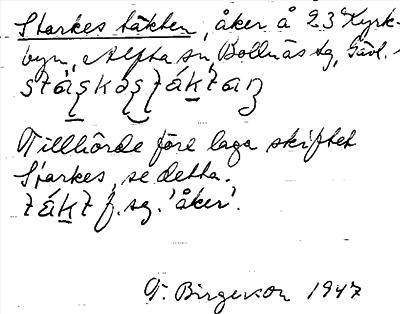 Starkes täkten, åker å 23 Kyrk-
byn, Alfta sn, Bollnäs tg, Gävl.
Tillhörde före laga skiftet
Starkes, se detta.
f. sg. 'åker'.
T. Birgerson 1947